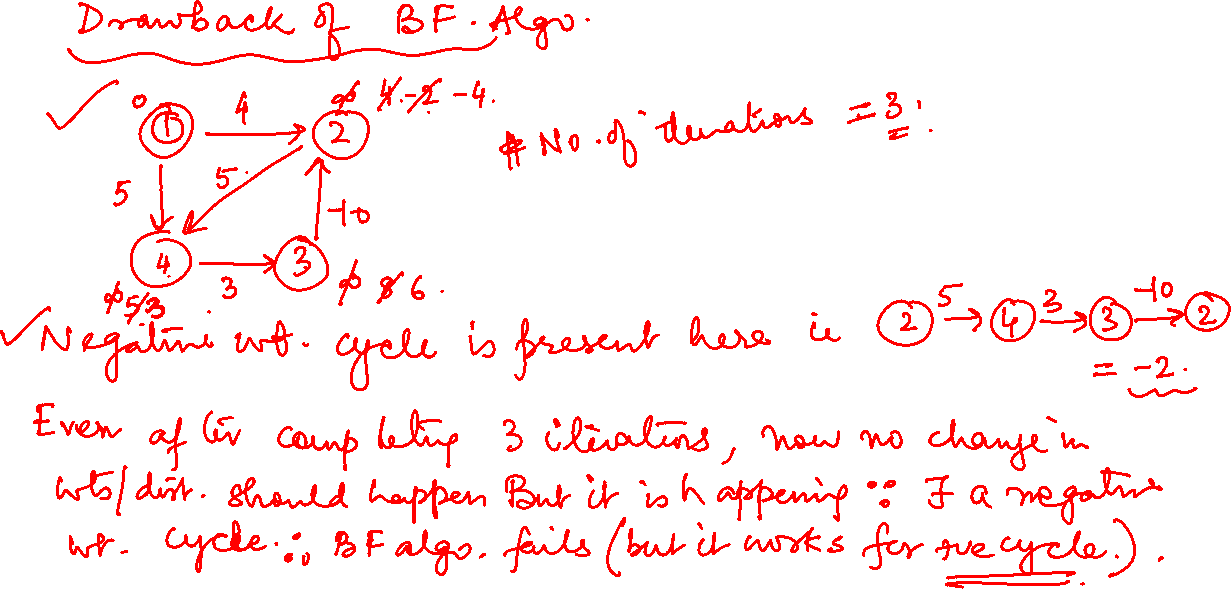 Drawback of BF. Algo.
0 4 ∞ 4 -2 -4.
1 2
# No. of iterations = 3.
5 5. -10
4 3 3
∞ 5/3 ∞ 8 6.
Negative wt. cycle is present here ie 2 5→ 4 3→ 3 -10→ 2
= -2.
Even after completing 3 iterations, now no change in
wts/dist. should happen But it is happening ∵ ∃ a negative
wt. cycle. ∴ BF algo. fails (but it works for +ve cycle.).